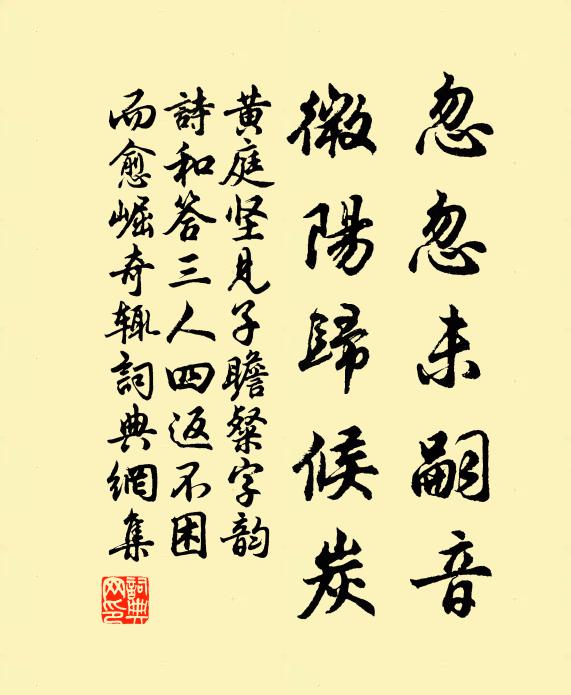 忽忽未嗣音
微陽歸候炭
黄庭坚見子瞻粲字韵
詩和答三人四返不困
而愈崛奇辄詞典網集
詞典網印